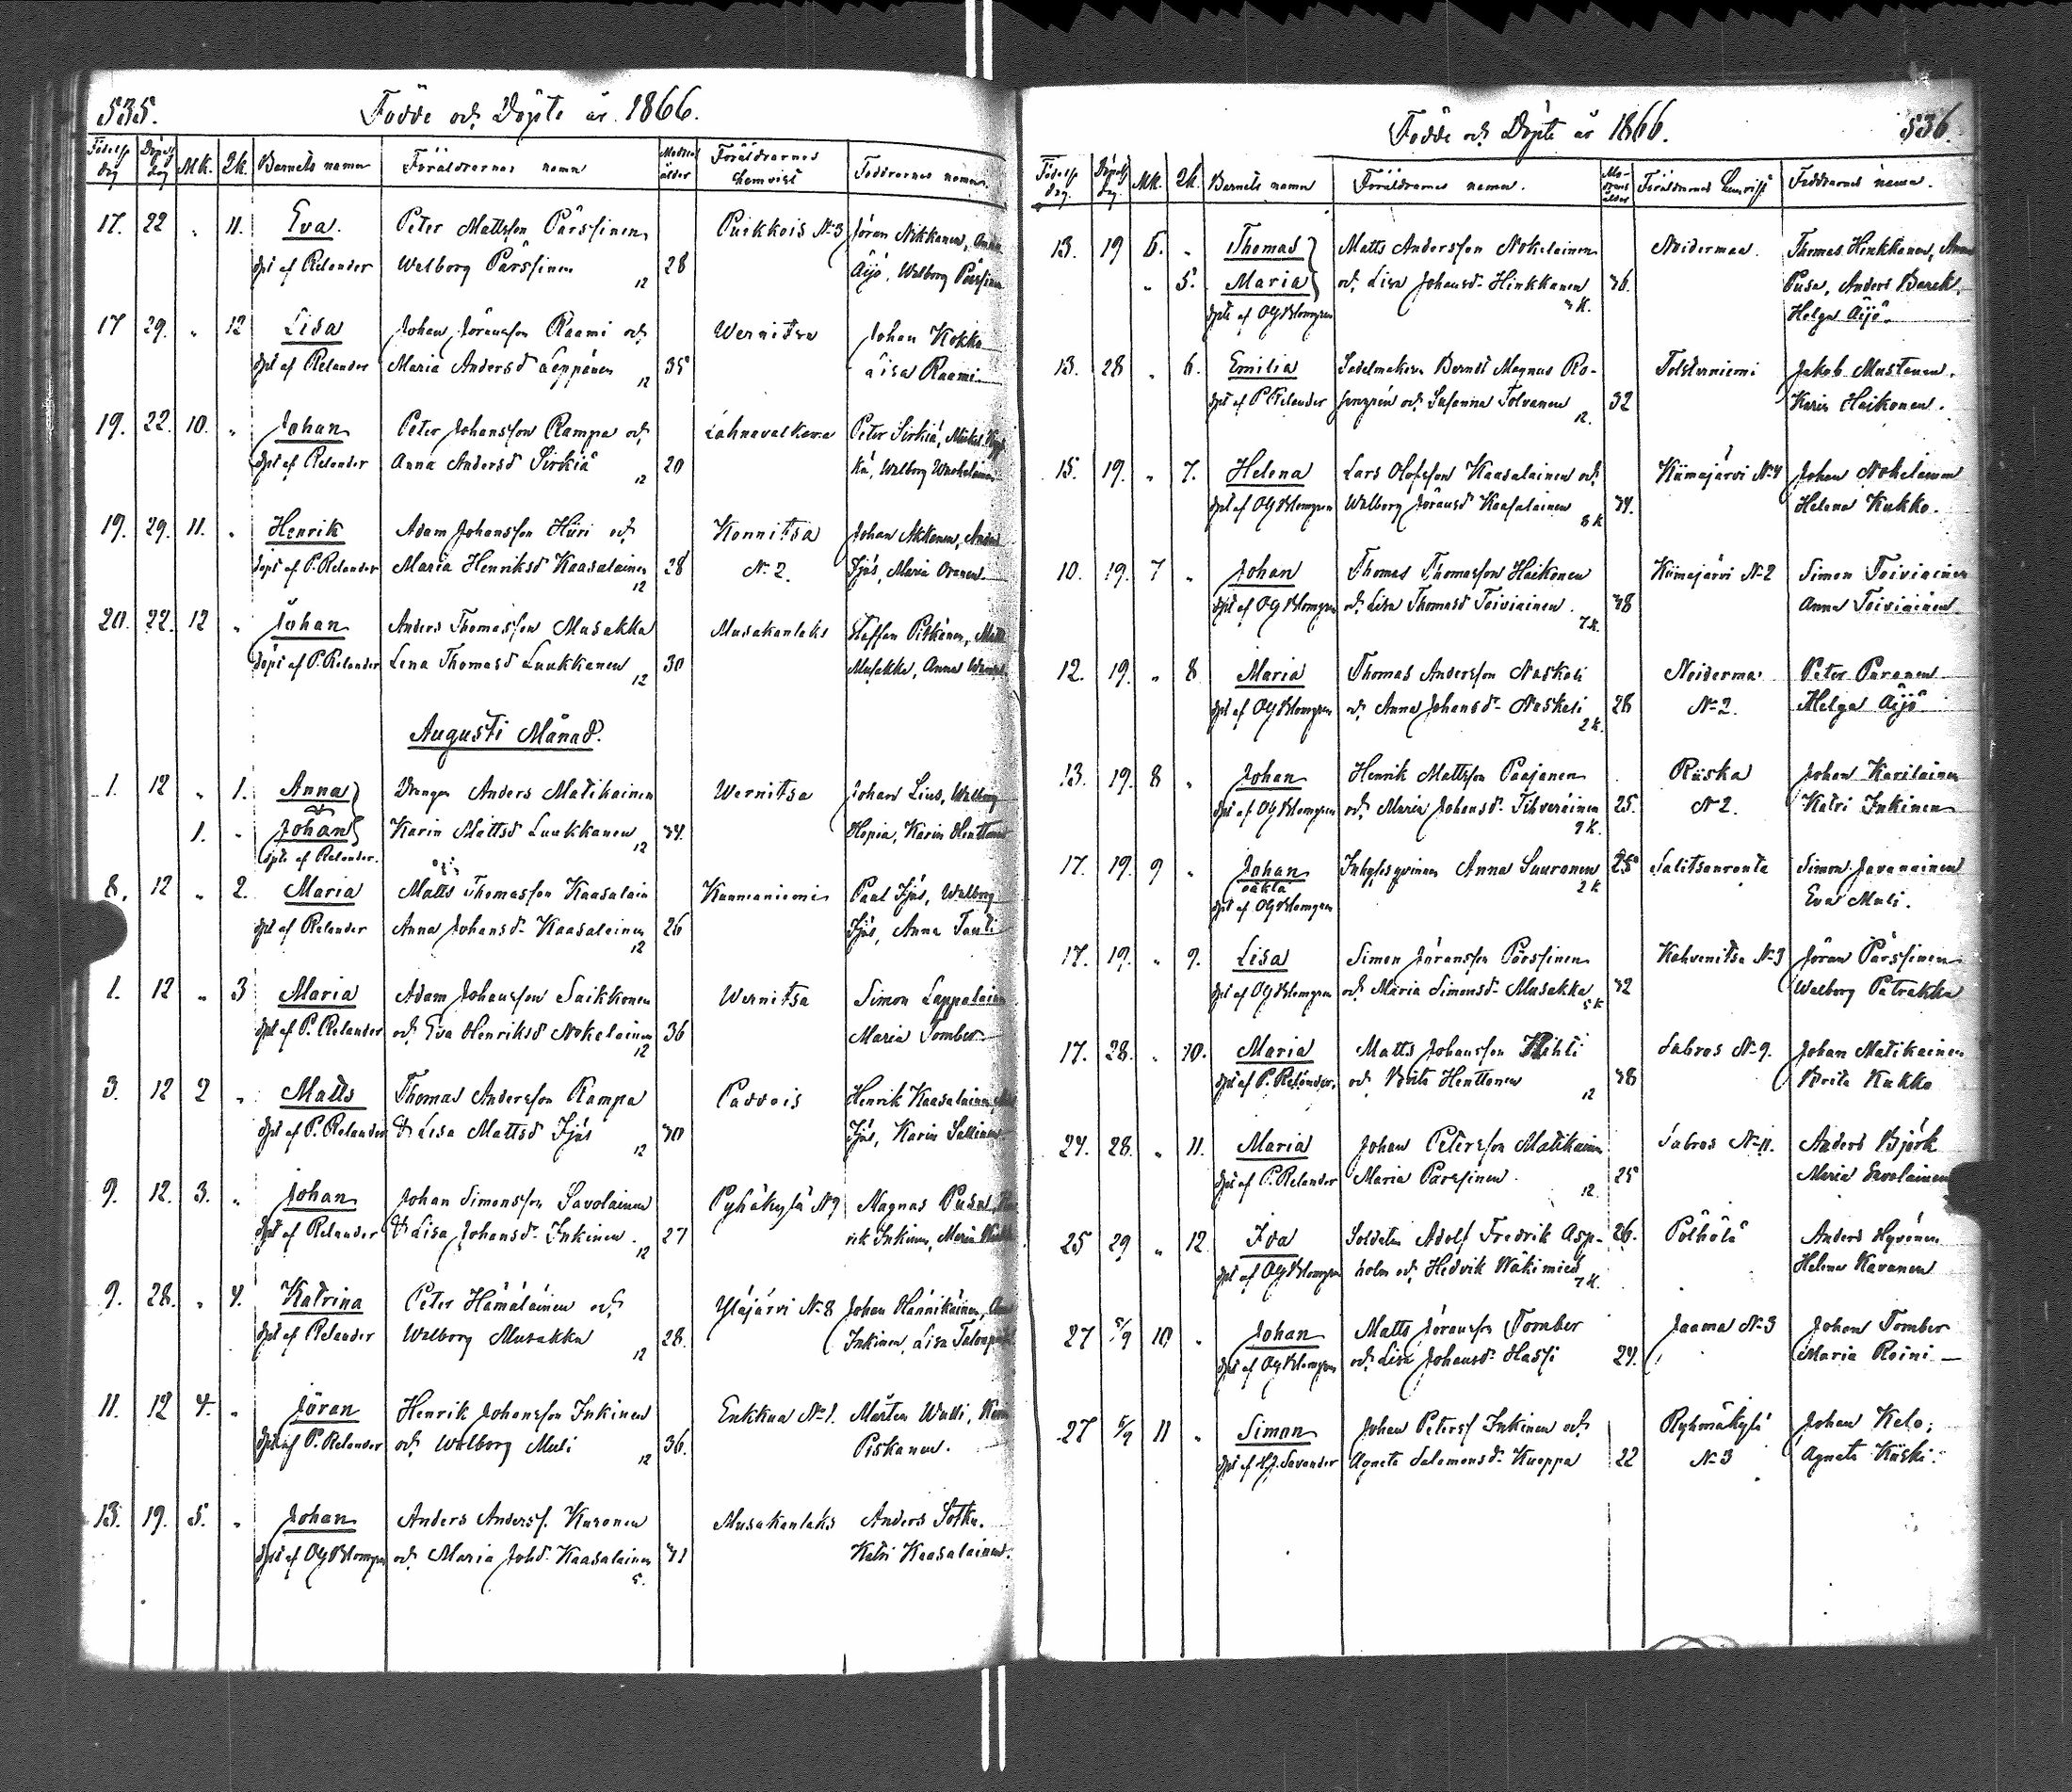 535.
Födde och Döpte år 1866.
Födelse dag Döpelse dag Mk. Qk. Barnets namn Föräldrarnes namn Modrens ålder Föräldrarnes hemvist Faddrarnes namn
17. 22 „ 11. Eva. Peter Mattsson Pärssinen Puikkois N:3 Jöran Nikkanen, Anna
döpt af Relander Walborg Pärssinen 12 28 Äijö, Walborg Pärssinen
17 29. „ 12 Lisa Johan Jöransson Raami och Wernitsa Johan Kokko
döpt af Relander Maria Andersd Leppänen 12 35 Lisa Raami
19. 22. 10. „ Johan Peter Johansson Rampa och Lahnavalkama Peter Sirkiä, Mickel
döpt af Relander Anna Andersd Sirkiä 12 20 Walborg
19. 29. 11. „ Henrik Adam Johansson Hüri och Konnitsa Johan Akkanen, Anders
döpt af P. Relander Maria Henriksd Kaasalainen 12 28 N:2. Ijäs, Maria Oranen
20. 22. 12 „ Johan Anders Thomasson Musakka Musakanlaks Staffan Pitkänen, Matts
döpt af P. Relander Lena Thomasd Luukkanen 12 30 Musakka, Anna
Augusti Månad.
1. 12 „ 1. Anna Drengen Anders Matikainen Wernitsa Johan Lius, Walborg
1. „ Johan Karin Mattsd Luukkanen 12 34. Hopia, Karin Henttonen
döpte af Relander.
8. 12 „ 2. Maria Matts Thomasson Kaasalain Kaumaniemi Paal Ijäs, Walborg
döpt af Relander Anna Johansd Kaasalainen 12 26 Ijäs, Anna Tauli
1. 12 „ 3 Maria Adam Johansson Saikkonen Wernitsa Simon Lappalainen
döpt af P. Relander och Eva Henriksd Nokelainen 12 36 Maria Tomber
3. 12 2 „ Matts Thomas Andersson Rampa Pavvois Henrik Kaasalainen,
döpt af P. Relander & Lisa Mattsd Ijäs 12 30 Ijäs, Karin Sallinen
9. 12. 3. „ Johan Johan Simonsson Savolainen Pyhäkylä N:9 Magnus Pusa,
döpt af Relander & Lisa Johansd Inkinen 12 27 rik Inkinen, Maria
9. 28. „ 4. Katrina Peter Hämäläinen och Yläjärvi N:8 Johan Hännikäinen,
döpt af Relander Walborg Musakka 12 28. Inkinen, Lisa
11. 12 4. „ Jöran Henrik Johansson Inkinen Enkkua N:1. Mårten Walli, Karin
döpt af P. Relander och Walborg Muli 12 36. Piskanen.
13. 19. 5. „ Johan Anders Anderss. Kuronen Musakanlaks Anders Sotka.
döpt af OG Blomgren och Maria Johd. Kaasalainen 5. 31 Katri Kaasalainen.
Födde och Döpte år 1866. 536.
Födelse dag. Döpelse dag. Mk. Qk. Barnets namn Föräldrarnes namn. Modrens ålder Föräldrarnes hemvist Faddrarnes namn.
13. 19 6. „ Thomas Matts Andersson Nokelainen Noidermaa. Thomas Hinkkanen, Anna
„ 5. Maria och Lisa Johansd. Hinkkanen 36. Pusa, Anders Barck,
döpte af OG Blomgren 3 K. Helga Äijö.
13. 28 „ 6. Emilia Sadelmakaren Berndt Magnus Ro- Tolsterniemi Jakob Mustonen.
döpt af P Relander sengrén och Susanna Tolvanen 12. 32 Karin Haikonen.
15. 19. „ 7. Helena Lars Olofsson Kaasalainen och Kiimajärvi N:4 Johan Nokelainen
döpt af OG Blomgren Walborg Jöransd Kaasalainen 8 K 34. Helena Kukko.
10. 19. 7 „ Johan Thomas Thomasson Haikonen Kiimajärvi N:2 Simon Toiviainen
döpt af OG Blomgren och Lisa Thomasd Toiviainen 7 K. 38 Anna Toiviainen
12. 19. „ 8 Maria Thomas Andersson Naskali Noiderma Peter Paranen
döpt af OG Blomgren och Anna Johansd. Naskali 2 K. 28 N:2. Helga Äijö
13. 19. 8 „ Johan Henrik Mattsson Paajanen Riiska Johan Karilainen
döpt af OG Blomgren och Maria Johansd. Tihveräinen 9 K. 25. N:2. Katri Inkinen
17. 19. 9 „ Johan Inhyseqvinnan Anna Suuronen 2 K 25 Salitsanranta Simon Javanainen
oäkta
döpt af OG Blomgren Eva Muli.
17. 19. „ 9. Lisa Simon Jöransson Pärssinen Kahvenitsa N:3 Jöran Pärssinen
döpt af OG Blomgren och Maria Simonsd. Musakka 5 K 32 Walborg Patrakka
17. 28. „ 10. Maria Matts Johansson Kihti Sabros N:9. Johan Matikainen
döpt af P. Relander. och Brita Henttonen 12 38 Brita Kukko
24. 28. „ 11. Maria Johan Petersson Matikainen Sabros N:11. Anders Björk
döpt af P. Relander Maria Pärssinen 12. 25 Maria Savolainen
25 29 „ 12 Ida Soldaten Adolf Fredrik Asp- 26. Pölhölä Anders Hyvönen
döpt af OG Blomgren holm och Hedvik Wäkimies 7 K. Helena Kavanen
27 5/9 10 „ Johan Matts Jöransson Tomber Jaama N:3 Johan Tomber
döpt af OG Blomgren och Lisa Johansd. Hassi 24. Maria Roini —
27 5/9 11 „ Simon Johan Peterss Inkinen och Ryhmäkylä Johan Kelo,
döpt af HJ. Savander Agneta Salomonsd. Kueppa 22 N:3 Agneta Kiiski.